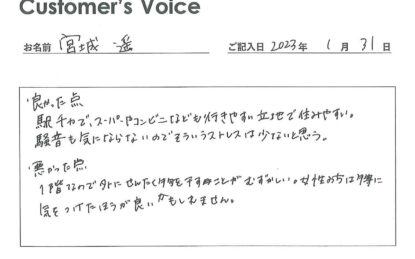 Customer's Voice
お名前 宮城 遥 ご記入日 2023年 1月 31日
良かった点
駅チカで、スーパーやコンビニなども行きやすい立地で住みやすい。
騒音も気にならないのでそういうストレスは少ないと思う。
悪かった点
1階なので外にせんたく物を干すことがむずかしい。女性の方は特に
気をつけたほうが良いかもしれません。